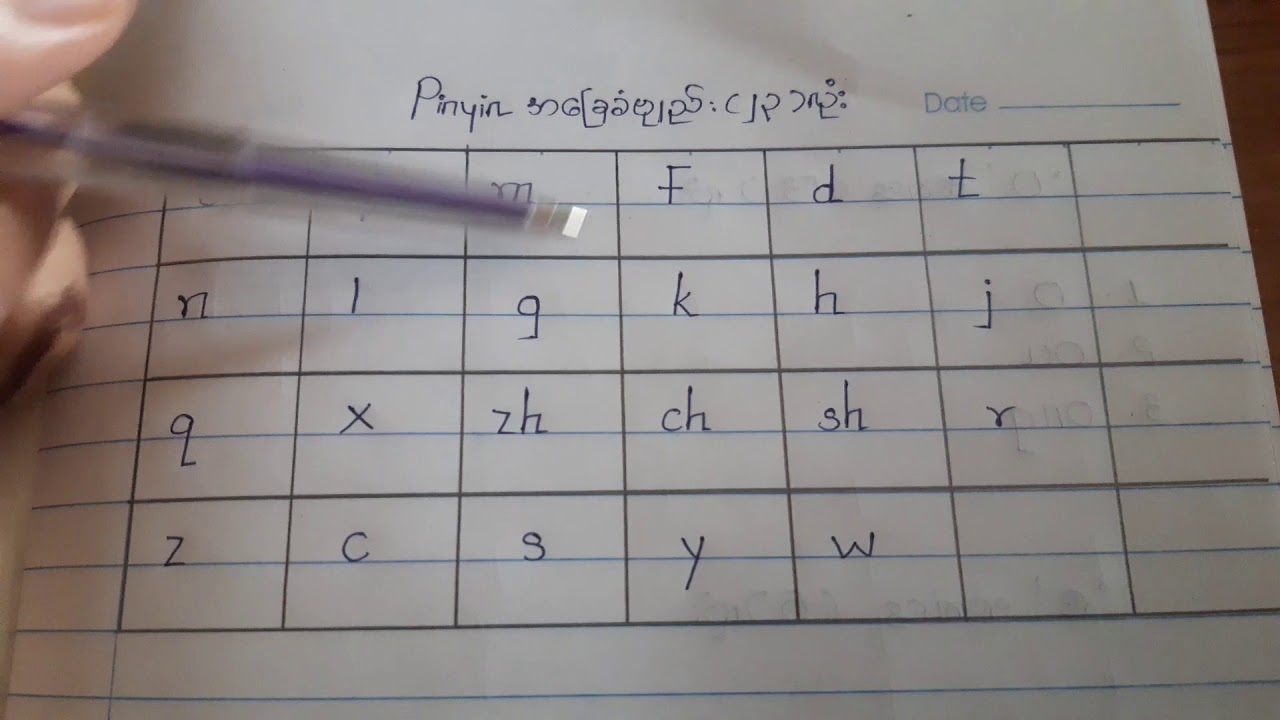 Pinyin အခြေခံဗျည်း (၂၃) လုံး Date
m F d t
n l g k h j
q x zh ch sh r
z c s y w